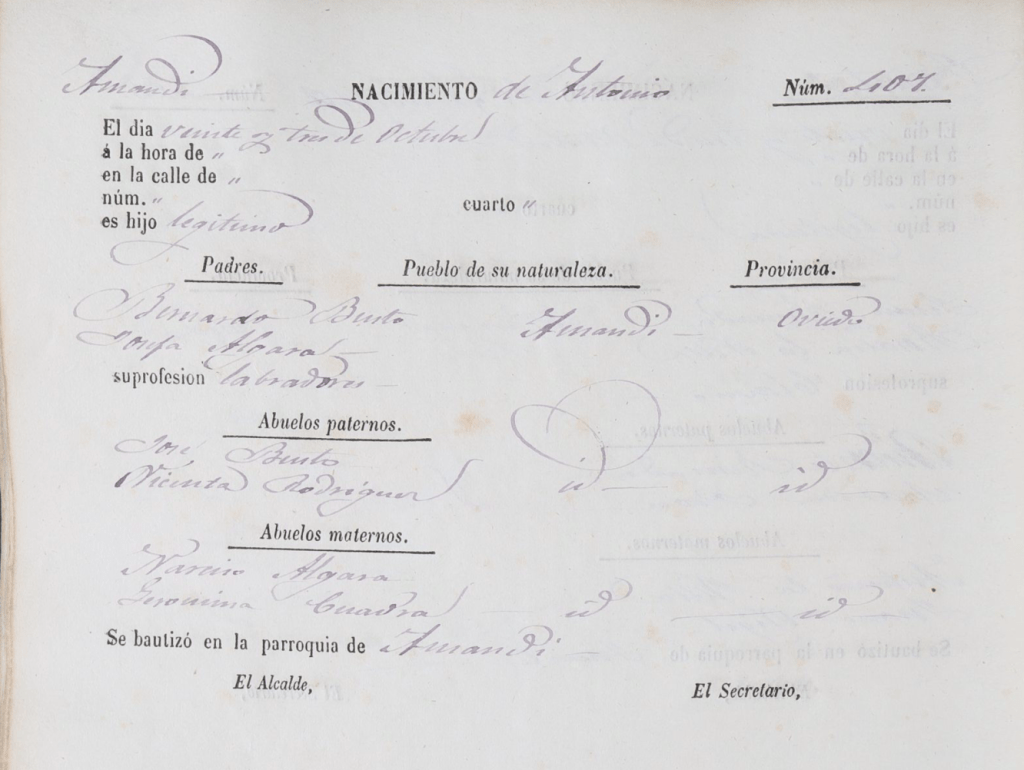 Amandi NACIMIENTO de Antonio Núm. 407.
El dia veinte y tres de Octubre
á la hora de „
en la calle de „
núm. „ cuarto „
es hijo legitimo
Padres. Pueblo de su naturaleza. Provincia.
Bernardo Busto Amandi — Oviedo
Josefa Algara
suprofesion labradores —
Abuelos paternos.
José Busto
Vicenta Rodriguez id — id —
Abuelos maternos.
Narciso Algara
Geronima Cuadra — id — id —
Se bautizó en la parroquia de Amandi —
El Alcalde, El Secretario,